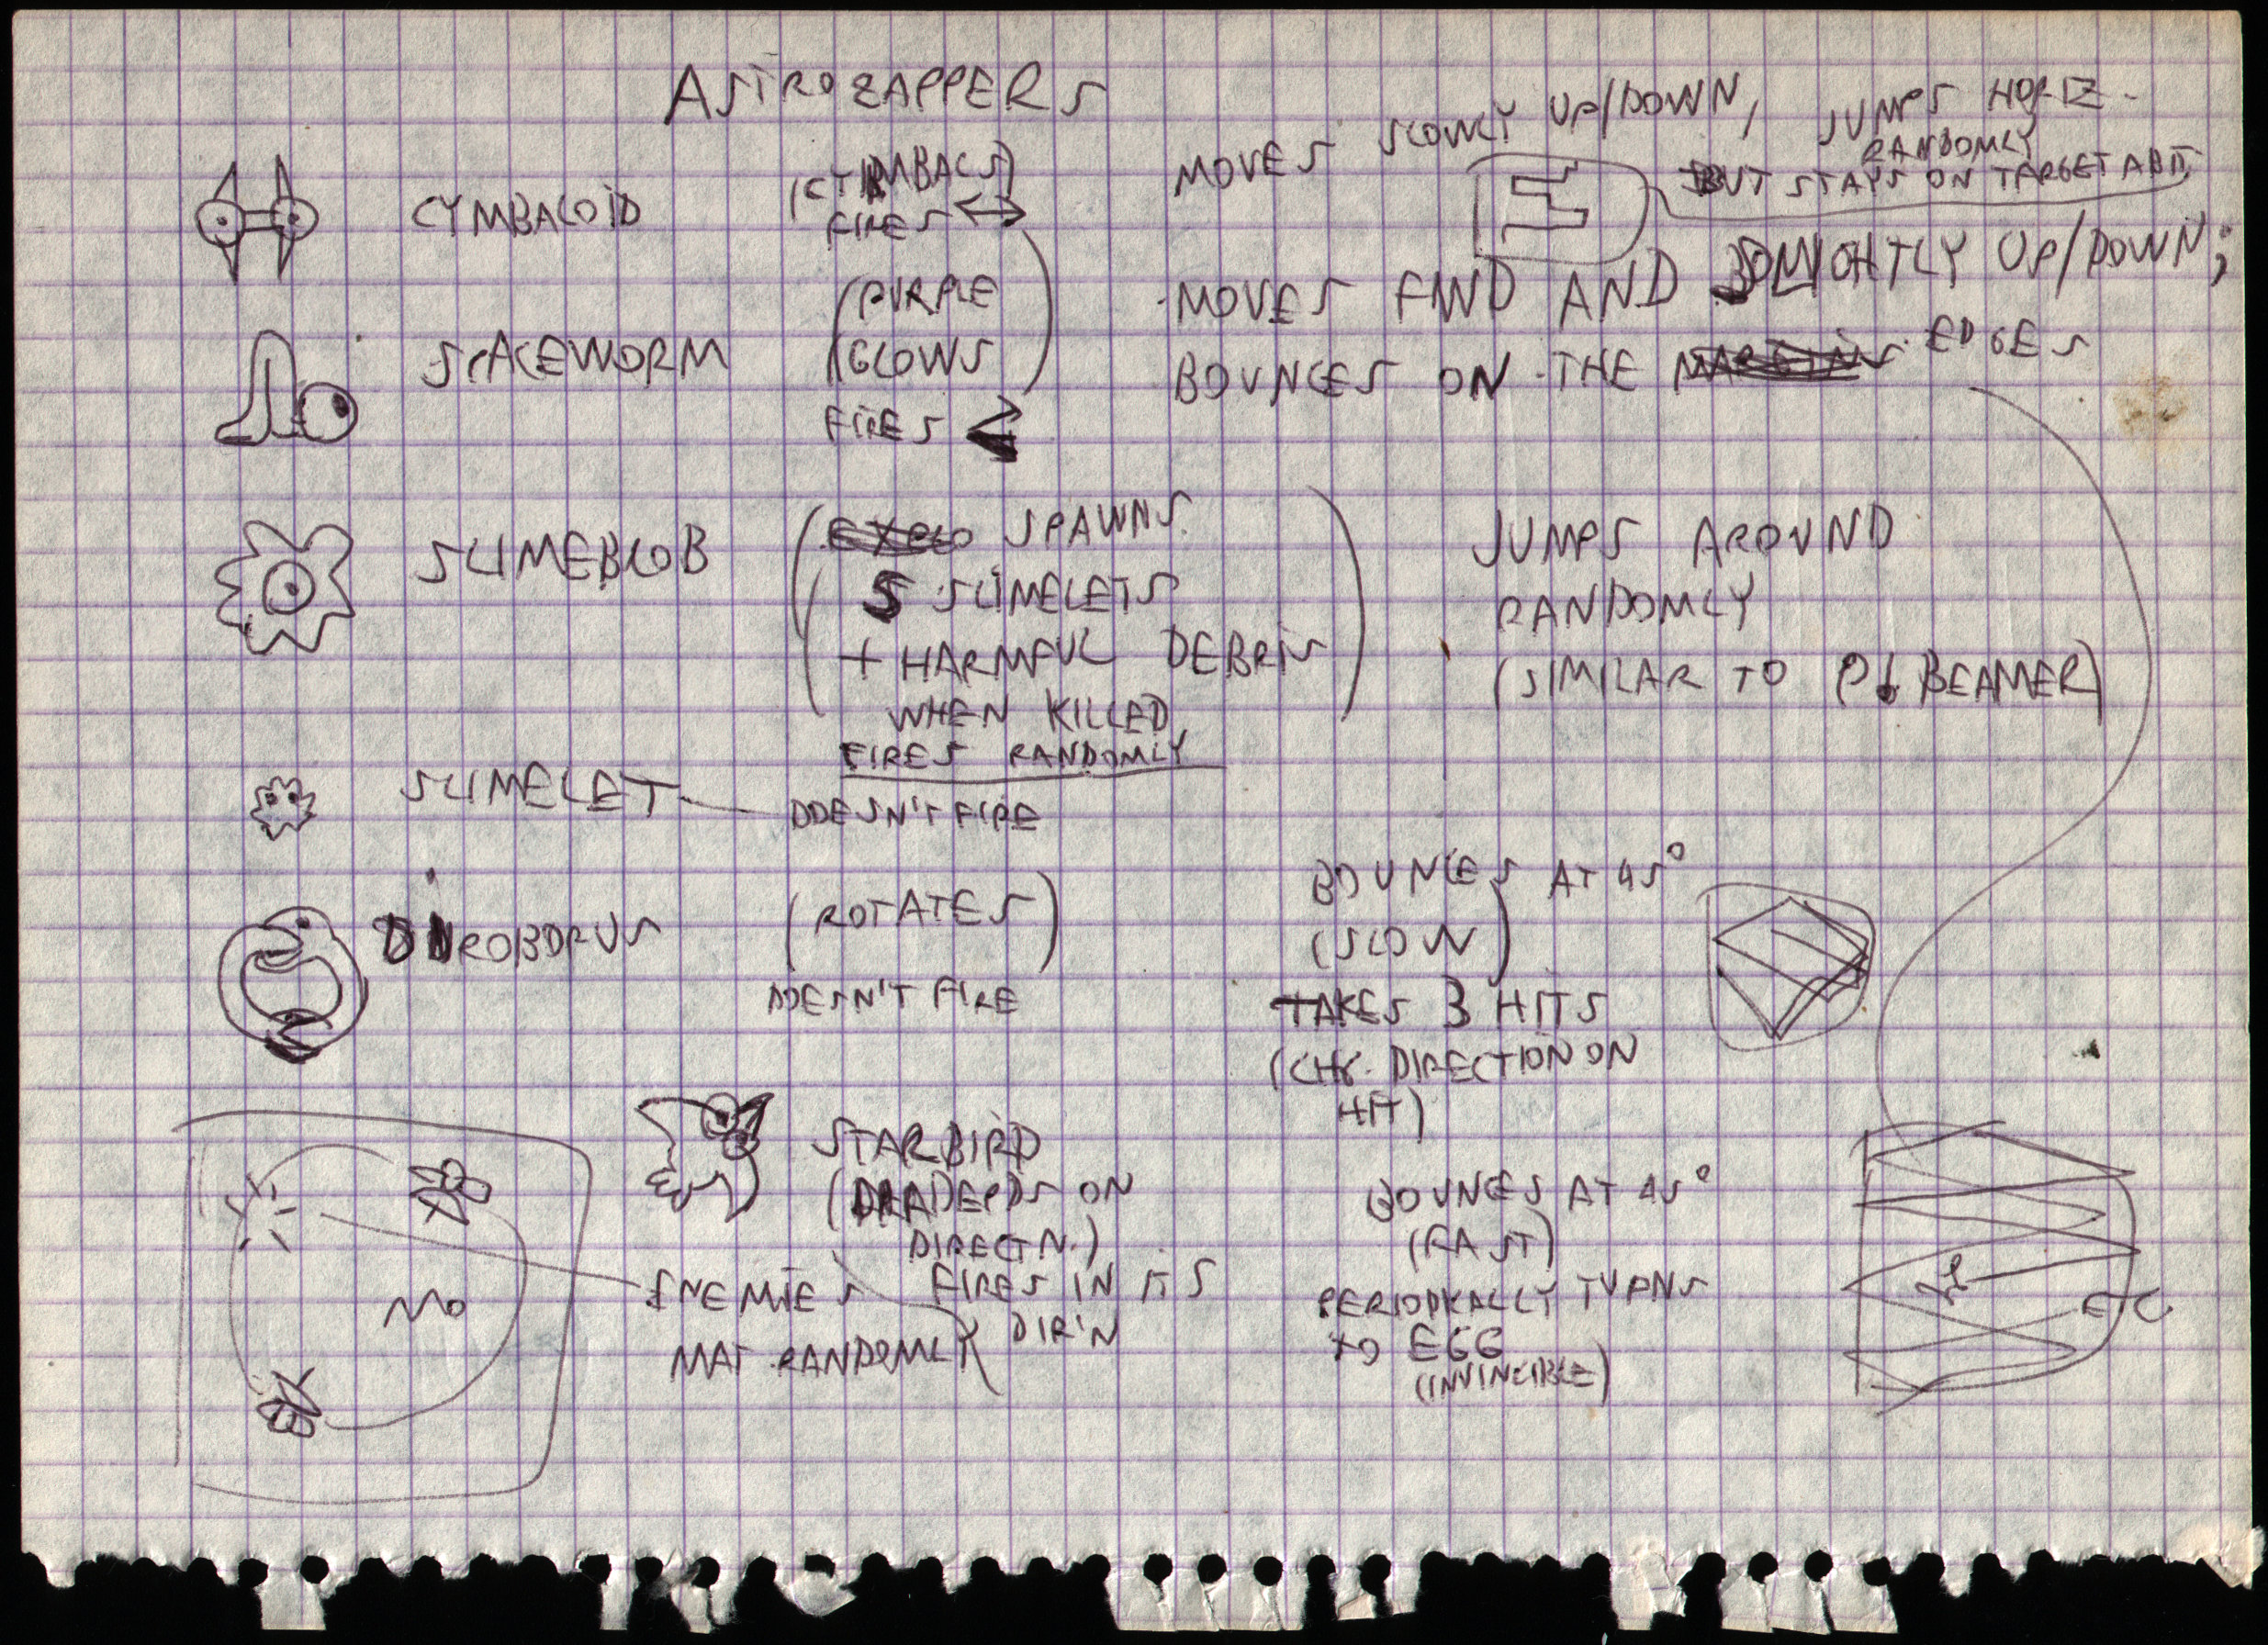 ASTROZAPPERS
CYMBALOID
(CYMBALS)
FIRES ↔
MOVES SLOWLY UP/DOWN, JUMPS HORIZ.
RANDOMLY
BUT STAYS ON TARGET
SPACEWORM
(PURPLE
GLOWS)
FIRES
MOVES FWD AND SLIGHTLY UP/DOWN;
BOUNCES ON THE EDGES
SLIMEBLOB
(SPAWNS
5 SLIMELETS
+ HARMFUL DEBRIS
WHEN KILLED)
FIRES RANDOMLY
JUMPS AROUND
RANDOMLY
(SIMILAR TO BEAMER)
SLIMELET
DOESN'T FIRE
UROBORUS
(ROTATES)
DOESN'T FIRE
BOUNCES AT 45°
(SLOW)
TAKES 3 HITS
(CHG. DIRECTION ON
HIT)
STARBIRD
(DEPDS ON
DIRECTN.)
FIRES IN ITS
DIR'N
BOUNCES AT 45°
(FAST)
PERIODICALLY TURNS
TO EGG
(INVINCIBLE)
ETC
ENEMIES
MAT RANDOMLY